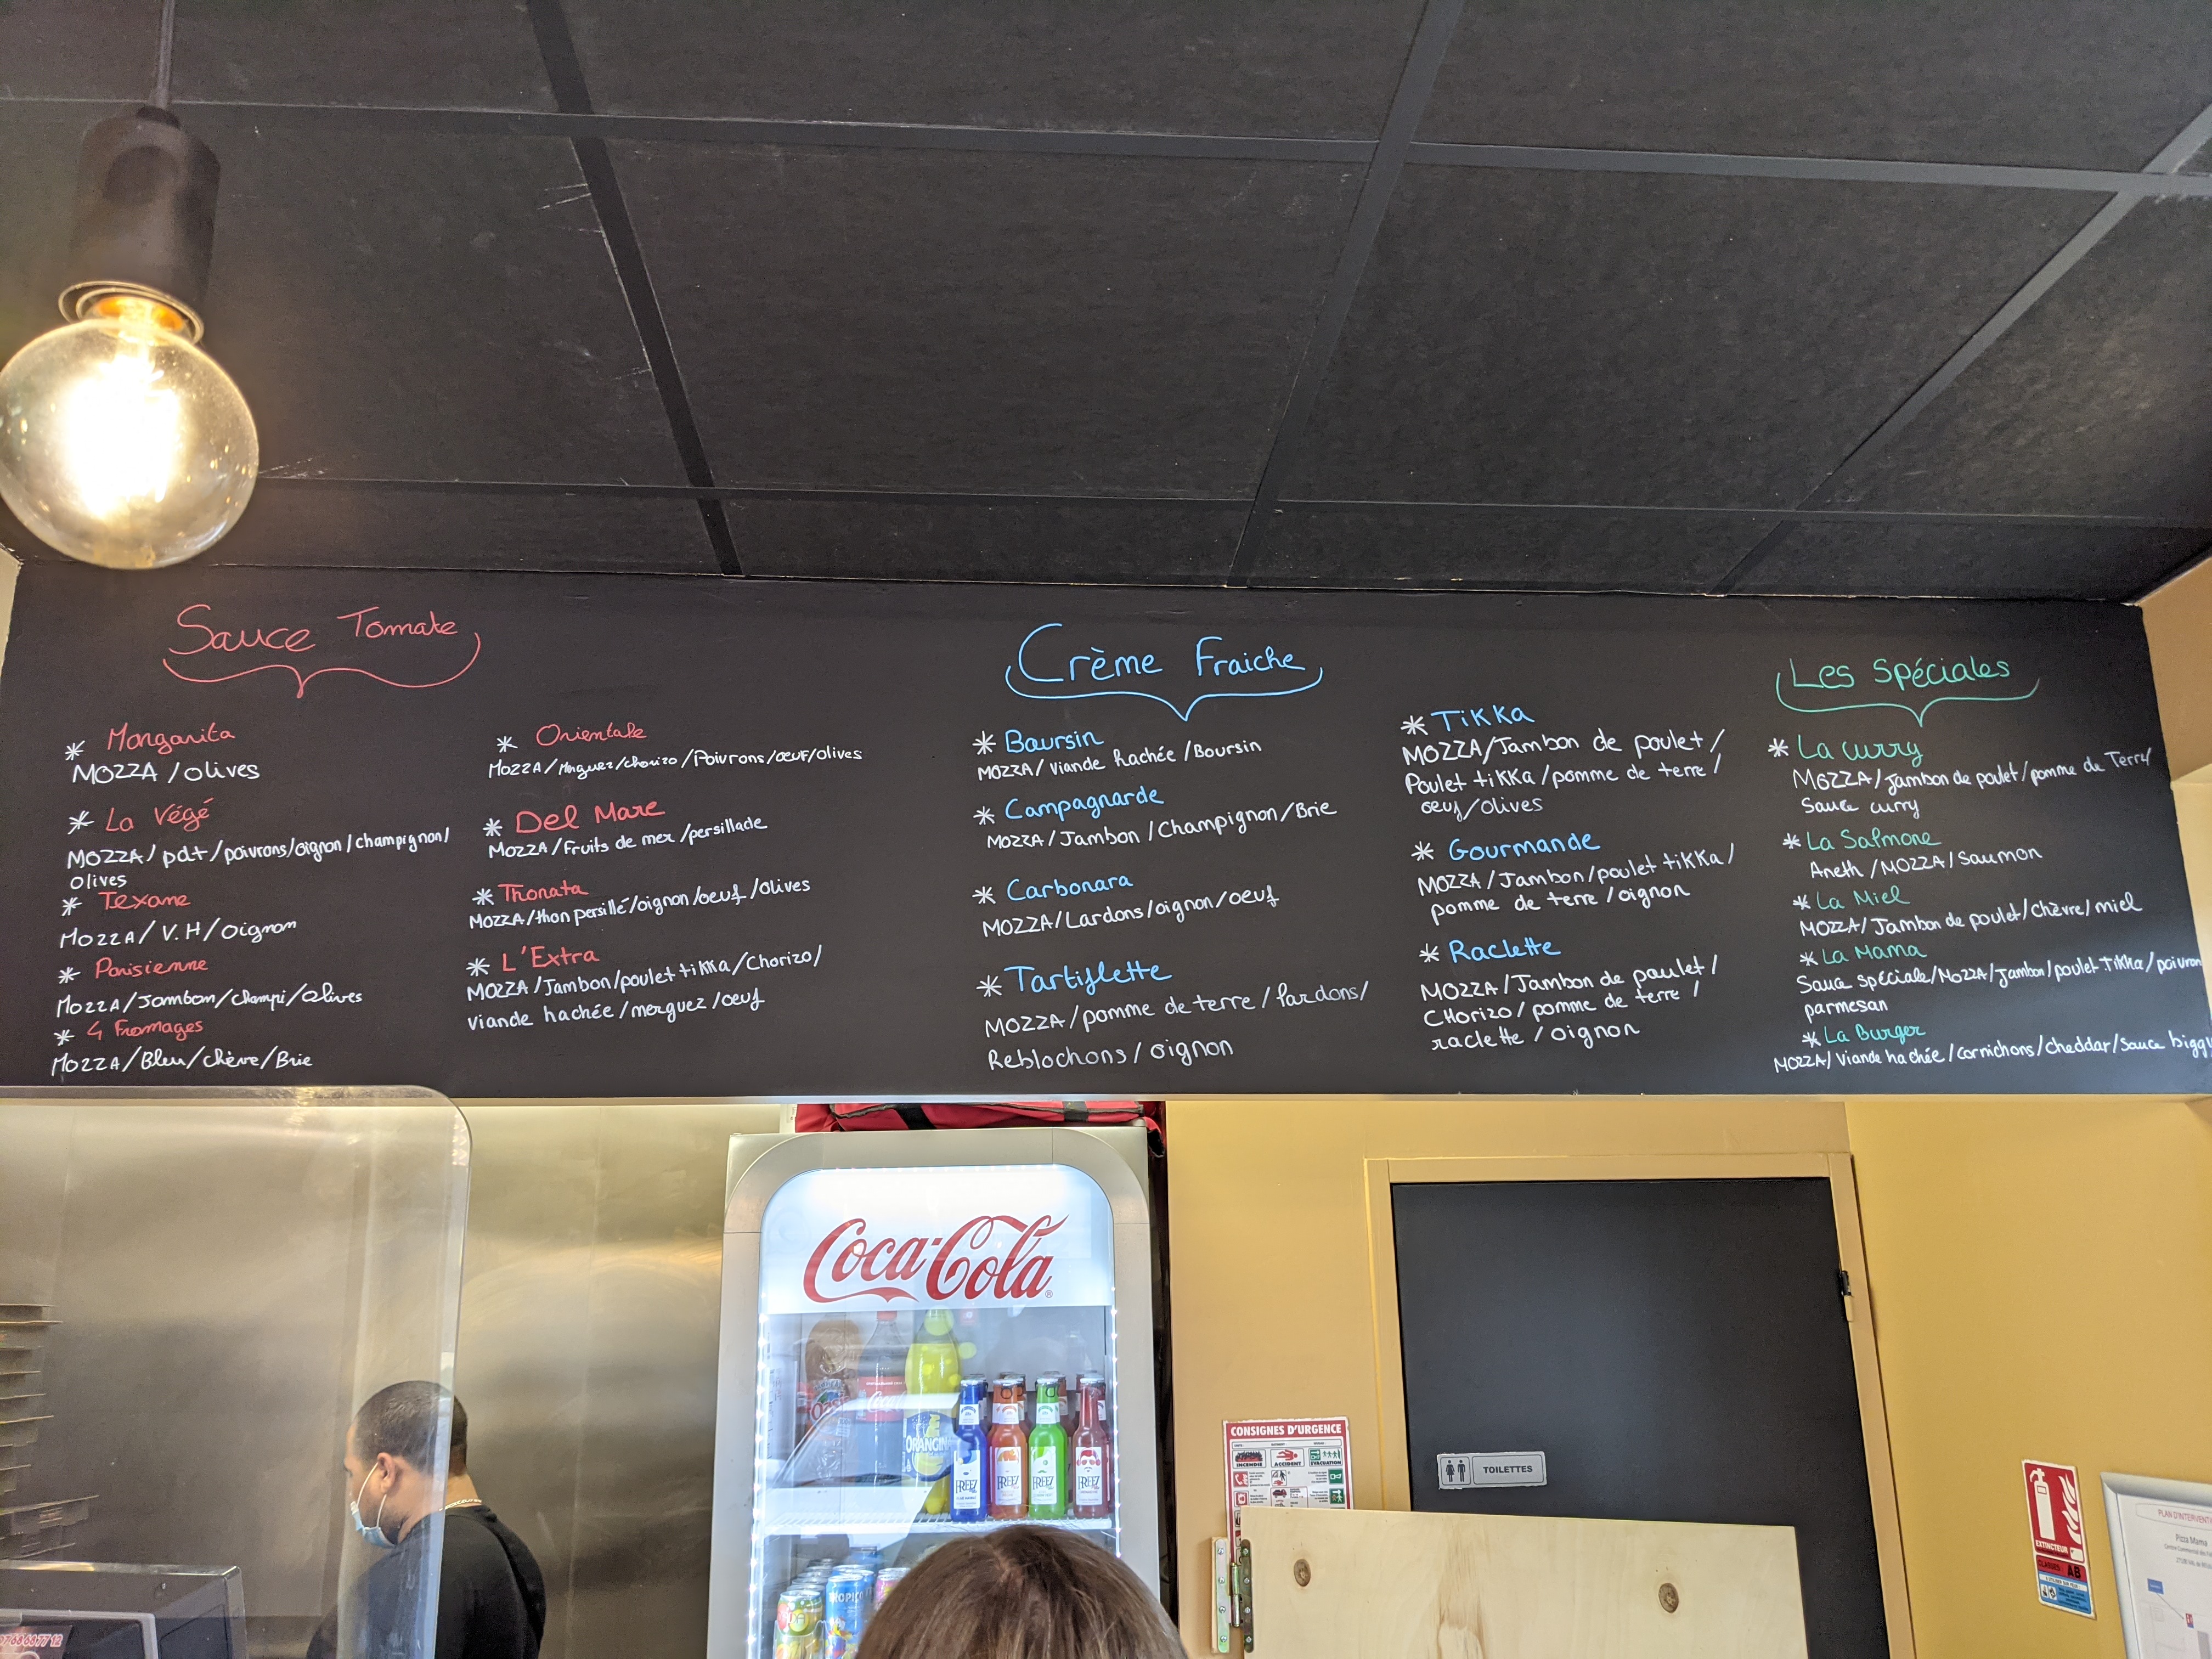 Sauce Tomate
* Margarita
MOZZA / olives
* La Végé
MOZZA / pdt / poivrons / oignon / champignon /
olives
* Texane
Mozza / V.H / oignon
* Parisienne
Mozza / Jambon / champi / olives
* 4 Fromages
Mozza / Bleu / chèvre / Brie
* Orientale
MOZZA / Merguez / chorizo / Poivrons / oeuf / olives
* Del Mare
Mozza / Fruits de mer / persillade
* Thonata
MOZZA / thon persillé / oignon / oeuf / olives
* L'Extra
MOZZA / Jambon / poulet tikka / Chorizo /
viande hachée / merguez / oeuf
Crème Fraiche
* Boursin
MOZZA / viande hachée / Boursin
* Campagnarde
MOZZA / Jambon / Champignon / Brie
* Carbonara
MOZZA / Lardons / oignon / oeuf
* Tartiflette
MOZZA / pomme de terre / lardons /
Reblochons / oignon
* TiKKa
MOZZA / Jambon de poulet /
Poulet tiKKa / pomme de terre /
oeuf / olives
* Gourmande
MOZZA / Jambon / poulet tiKKa /
pomme de terre / oignon
* Raclette
MOZZA / Jambon de poulet /
CHorizo / pomme de terre /
raclette / oignon
Les Spéciales
* La curry
MOZZA / jambon de poulet / pomme de Terre /
Sauce curry
* La Salmone
Aneth / MOZZA / Saumon
* La Miel
MOZZA / Jambon de poulet / Chèvre / miel
* La Mama
Sauce spéciale / MOZZA / Jambon / poulet Tikka / poivron
parmesan
* La Burger
MOZZA / Viande hachée / cornichons / cheddar / sauce bigg
Coca-Cola
Oasis
Coca
ORANGINA
FREEZ
FREEZ
FREEZ
FREEZ
TROPICO
CONSIGNES D'URGENCE
INCENDIE
ACCIDENT
ÉVACUATION
TOILETTES
EXTINCTEUR
CLASSES: AB
PLAN D'INTERVENTI
Pizza Mama